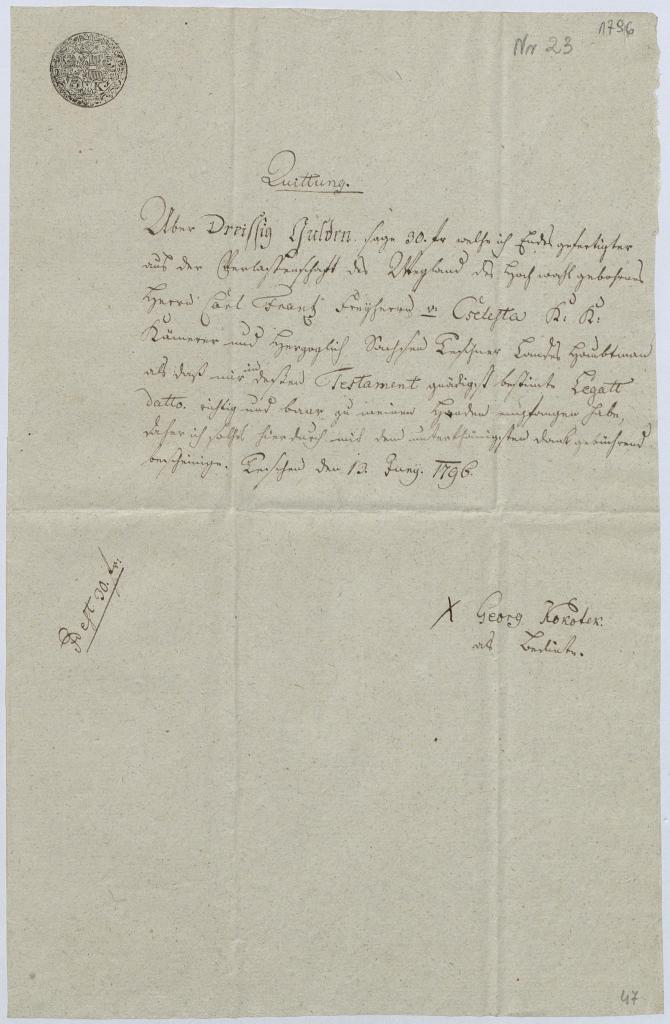 1796
Nr 23
3 K.
Quittung.
Über Dreissig Gulden. sage 30. fr welche ich Endesgefertigter
aus der Verlassenschaft des Weyland des Hochwohlgebohrnes
Herrn Carl Frantz Freyherrn v: Cselesta K: K:
Kämerer und Herzoglich Sachsen Teschner Landes Haubtman
als daß mir in dessen Testament gnädigst bestimte Legatt
datto. richtig und baar zu meinen Handen empfangen habe,
daher ich solches hierdurch mit dem unterthänigsten Dank gebührend
bescheinige. Teschen den 13. Juny. 1796.
Pest 30. fr:
X Georg Kokotek.
als Bedinte.
47